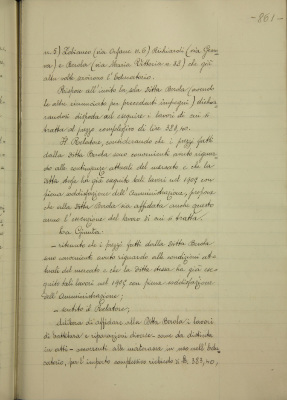 -861-
n. 5) Zobianco (via Orfane n. 6) Rubiandi (via Geno-
va) e Berola (via Maria Vittoria n. 32) che già
altre volte servirono l'Educatorio.
Rispose all'invito la sola Ditta Berola (avendo
le altre rinunciato per precedenti impegni) dichia-
randosi disposta ad eseguire i lavori di cui si
tratta al prezzo complessivo di lire 383,40.
Il Relatore, considerando che i prezzi fatti
dalla Ditta Berola sono convenienti avuto riguar-
do alle contingenze attuali del mercato e che la
Ditta stessa ha già eseguito tali lavori nel 1905 con
piena soddisfazione dell'Amministrazione, propone
che alla Ditta Berola sia affidata anche questo
anno l'esecuzione del lavoro di cui si tratta.
La Giunta:
— ritenuto che i prezzi fatti dalla Ditta Berola
sono convenienti avuto riguardo alle condizioni at-
tuali del mercato e che la Ditta stessa ha già ese-
guito tali lavori nel 1905 con piena soddisfazione
dell'Amministrazione;
— sentito il Relatore;
delibera di affidare alla Ditta Berola i lavori
di battitura e riparazioni diverse - come da distinta
in atti - occorrenti alle materasse in uso nell'Edu-
catorio, per l'importo complessivo richiesto di £. 383,40,